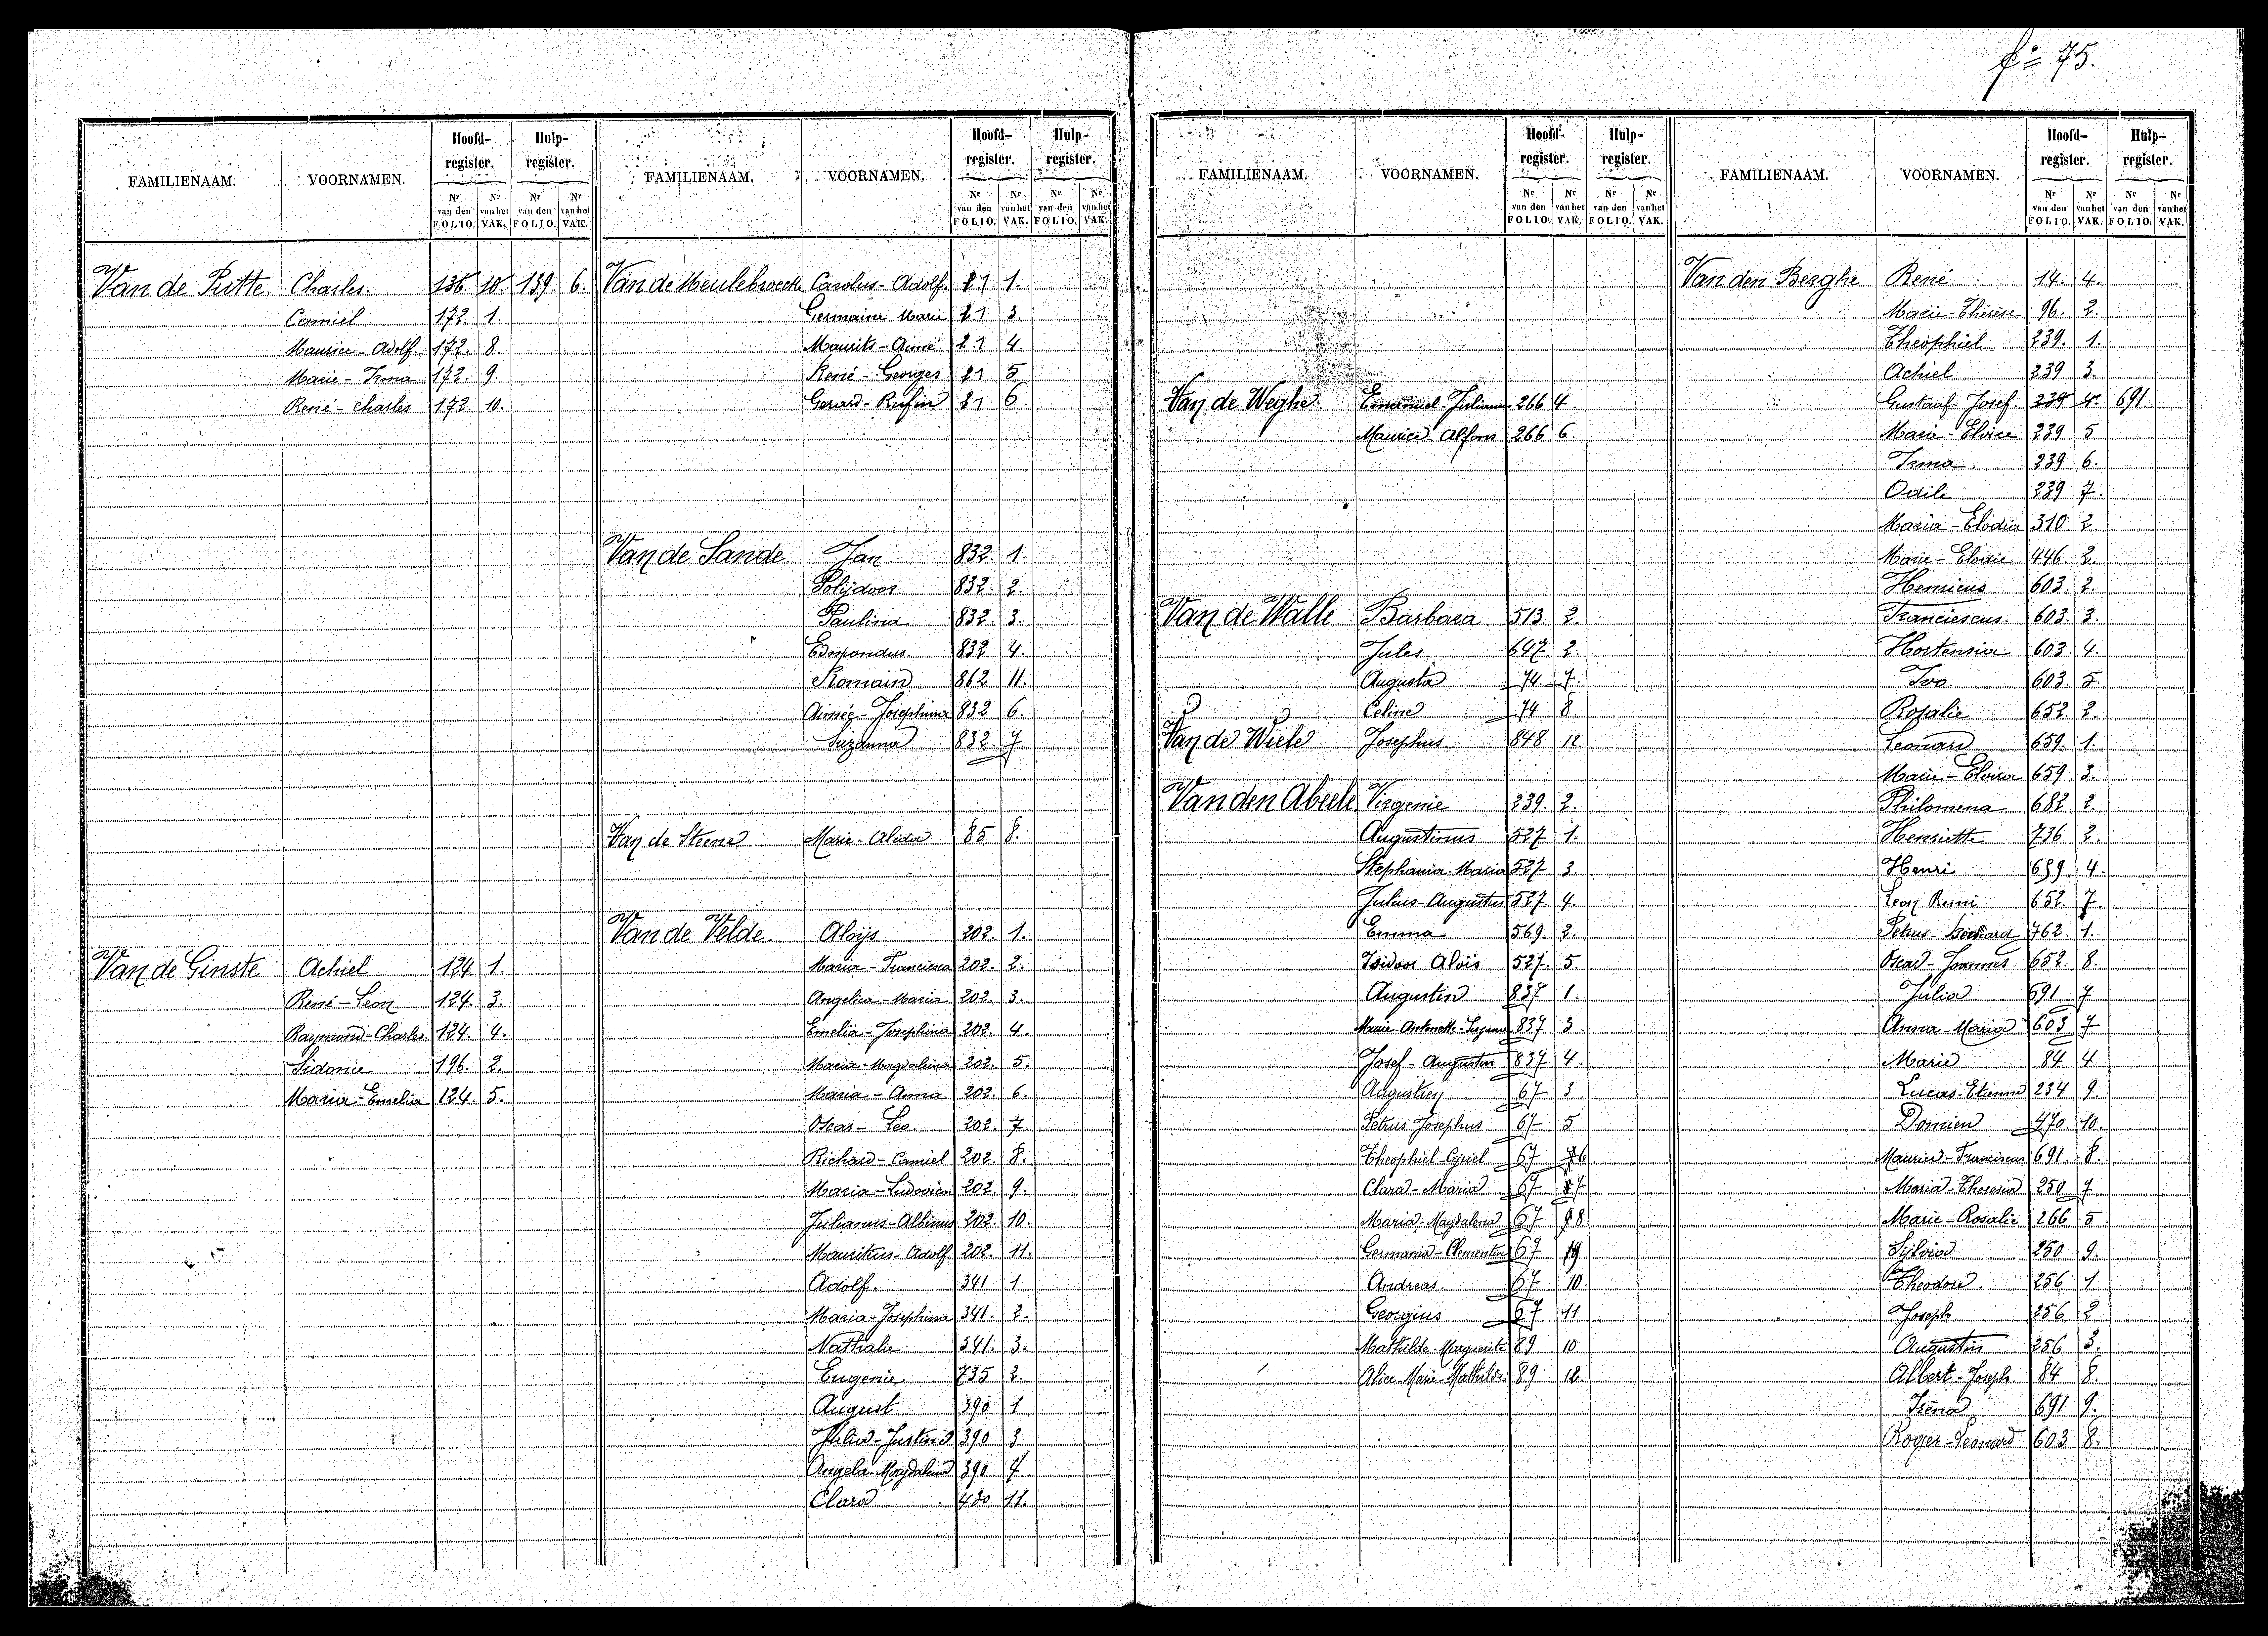 fº 75.
FAMILIENAAM. VOORNAMEN. Hoofd-register. Hulp-register.
Nr van den FOLIO. Nr van het VAK. Nr van den FOLIO. Nr van het VAK.
Van de Putte. Charles. 136. 10. 139. 6.
Camiel 172. 1.
Maurice-Adolf 172. 8.
Marie-Irma 172. 9.
René-Charles 172 10.
Van de Ginste Achiel 124. 1.
René-Leon 124. 3.
Raymond-Charles. 124. 4.
Sidonie 196. 2.
Maria-Emelia 124. 5.
FAMILIENAAM. VOORNAMEN. Hoofd-register. Hulp-register.
Nr van den FOLIO. Nr van het VAK. Nr van den FOLIO. Nr van het VAK.
Van de Meulebroecke Carolus-Adolf. 21 1.
Germaine Marie 21 3
Maurits-Aimé 21 4.
René-Georges 21 5
Gerard-Rufin 21 6.
Van de Sande. Jan 832. 1.
Polijdoor 832. 2.
Paulina 832. 3.
Edmondus 832 4.
Romain 862 11.
Aimée-Josephina 832 6.
Suzanna 832 7
Van de Steene Marie-Alida 85 8.
Van de Velde. Aloijs 202. 1.
Maria-Francisca 202. 2.
Angelica-Maria 202. 3.
Emelia-Josephina 202. 4.
Maria-Magdalena 202. 5.
Maria-Anna 202. 6.
Oscar-Leo. 202. 7
Richard-Camiel 202. 8.
Maria-Ludovica 202. 9.
Julianus-Albinus 202. 10.
Mauritius-Adolf 202. 11.
Adolf. 341 1
Maria-Josephina 341. 2.
Nathalie 341. 3.
Eugenie 735 2.
August 390 1
Julia-Justina 390 3
Angela-Magdalena 390 4
Clara 430 11.
FAMILIENAAM. VOORNAMEN. Hoofd-register. Hulp-register.
Nr van den FOLIO. Nr van het VAK. Nr van den FOLIO. Nr van het VAK.
Van de Weghe Emanuel-Julianus 266 4.
Maurice-Alfons 266 6.
Van de Walle Barbara 513 2.
Jules 647 2.
Augusta 74. 7
Celine 74 8.
Van de Wiele Josephus 848 12
Van den Abeele Virgenie 239. 2.
Augustinus 527 1.
Stephania-Maria 527 3.
Julius-Augustus 527. 4.
Emma 569 2.
Isidoor Aloïs 527. 5.
Augustin 837 1.
Marie-Antonette-Suzanna 837 3
Josef-Augustin 837 4.
Augustien 67 3
Petrus Josephus 67 5
Theophiel-Cyriel 67 6
Clara-Maria 67 7
Maria-Magdalena 67 8
Germania-Clementina 67 9
Andreas. 67 10.
Georgius 67 11
Mathilde-Marguerite 89 10
Alice-Marie-Mathilde 89 12
FAMILIENAAM. VOORNAMEN. Hoofd-register. Hulp-register.
Nr van den FOLIO. Nr van het VAK. Nr van den FOLIO. Nr van het VAK.
Van den Berghe René 14. 4.
Marie-Thérèse 96. 2.
Theophiel 239. 1.
Achiel 239 3.
Gustaaf-Josef. 239 4. 691
Marie-Elvire 239 5
Irma. 239 6.
Odile 239 7.
Maria-Elodia 310. 2
Marie-Elodie 446. 2.
Henricus 603. 2.
Franciescus. 603. 3.
Hortensia 603. 4.
Ivo 603. 5.
Rosalie 652. 2.
Leonard 659. 1.
Marie-Elvira 659 3.
Philomena 682 2
Henriette 736 2.
Henri 659 4.
Leon Remi 652. 7.
Petrus- 762. 1.
Oscar-Joannes 652. 8.
Julia 691 7
Anna-Maria 603 7
Marie 84 4
Lucas-Etienne 234 9.
Domien 470. 10.
Maurice-Franciscus 691 8.
Maria-Theresia 250 7
Marie-Rosalie 266 5
Sijlvia 250 9.
Theodore. 256 1
Joseph 256 2
Augustin 256 3.
Albert-Joseph 84 8.
Iréna 691 9.
Roger-Leonard 603 8.